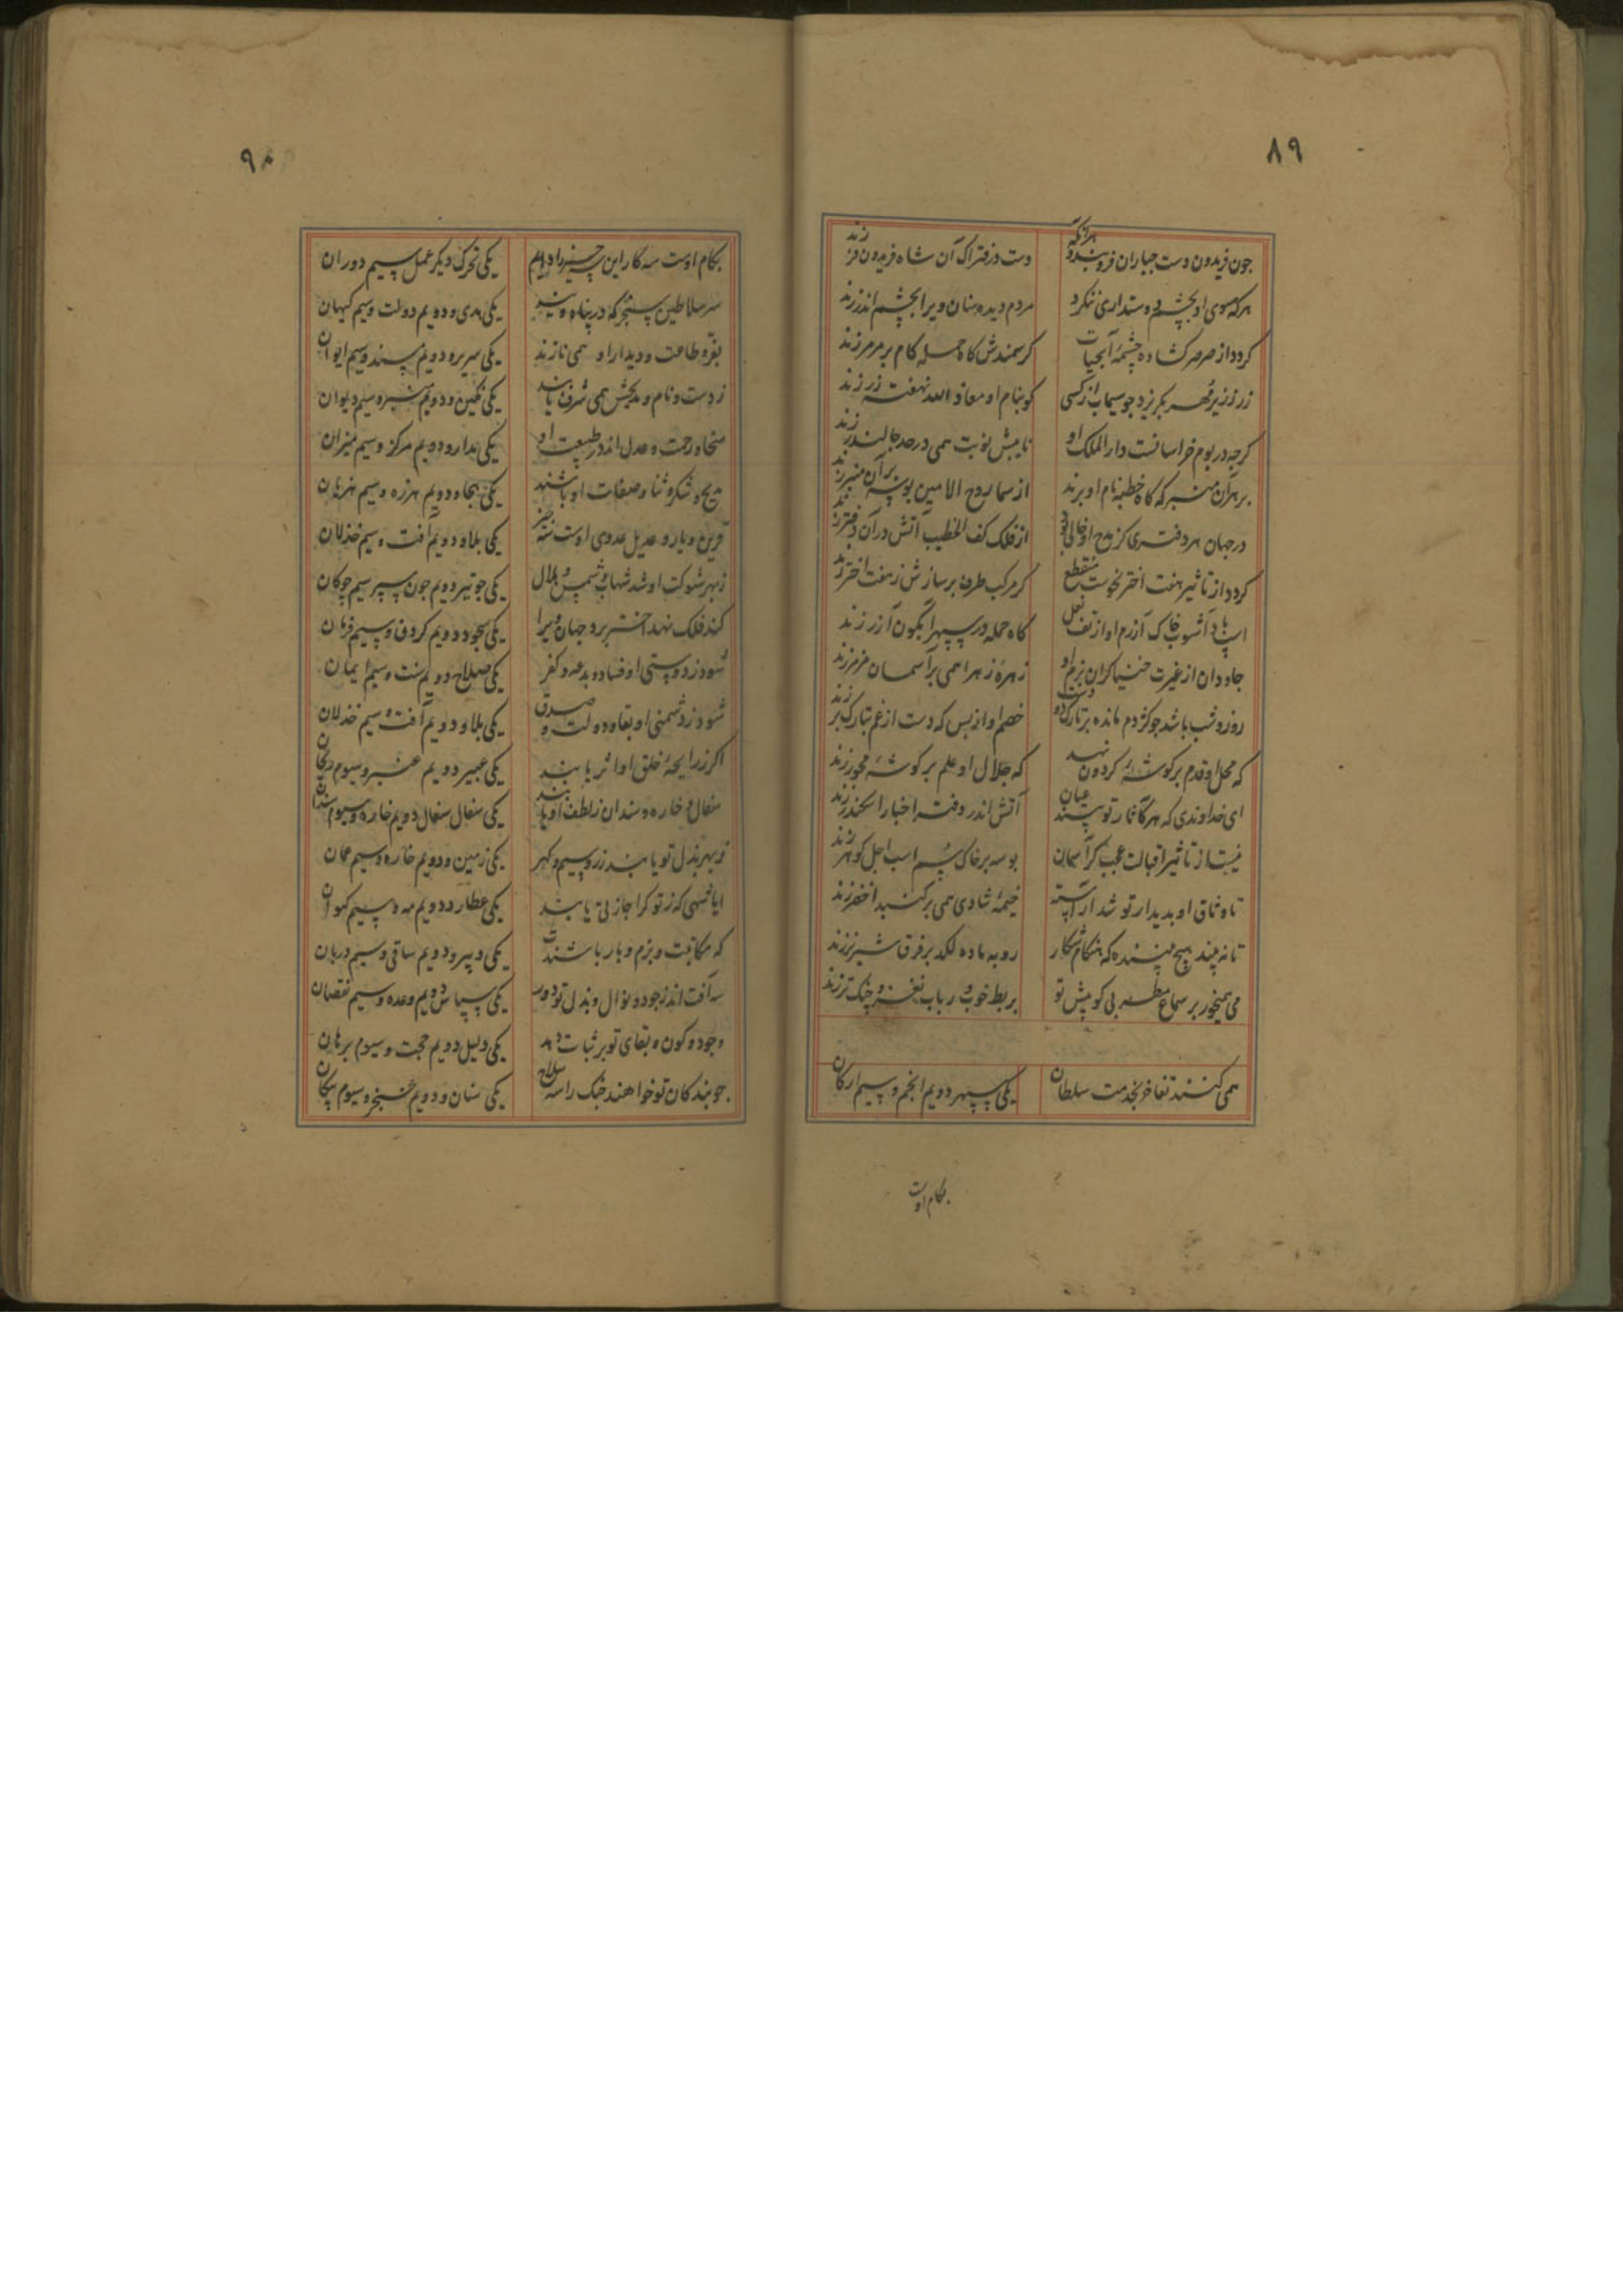 ٨٩
جون فریدون دست جباران فرو بندد هرآنکه
دست در فتراک آن شاه فریدون فر زند
هرکه سوی او بچشم دوستداری ننکرد
مردم دیده سنان ویرا بچشم اندر زند
کردد از صرصر کشاده چشمهٔ آبحیات
کر سمندش کاه حمله کام بر مرمر زند
زر ز زیر مهر بکریزد جو سیماب از کسی
کو بنام او معاذ الله نهفته زر زند
کرجه در بوم خراسانست دار الملک او
نایبش نوبت همی در حد جالندر زند
بر هر آن منبر که کاه خطبه نام او برند
از سما روح الامین بوسه بر آن منبر زند
در جهان هر دفتری کز مدح او خالی بود
از فلک کف الخطیب آتش در آن دفتر زند
کردد از تاثیر هفت اختر نحوست منقطع
کر مرکب طرف بر سازش ز هفت اختر زند
اسپ باد آشوب خاک آزرم او از تف نعل
کاه حمله در سپهر آبکون آزر زند
جاودان از غیرت خنیاکران بزم او
زهرهٔ زهرا همی بر آسمان مزمر زند
روز و شب باشد جو کژدم مانده بر تارک دو دست
خصم او از بس که دست از غم بتارک بر زند
که محل او قدم بر کوشهٔ کردون نهد
که جلال او علم بر کوشهٔ محور زند
ای خداوندی که هر کاثار تو بیند عیان
آتش اندر دفتر اخبار اسکندر زند
نیست از تاثیر اقبالت عجب کر آسمان
بوسه بر خاک سم اسب اجل کوهر زند
تا وثاق او بدیدار تو شد آراسته
خیمهٔ شادی همی بر کنبد اخضر زند
تا نه بیند هیچ بیننده که هنکام شکار
روبه ماده لکد بر فرق شیر نر زند
می همیخور بر سماع مطربی کو پیش تو
بربط خوب و رباب نغز و چنک تر زند
همی کنند تفاخر بخدمت سلطان
یکی سپهر دویم انجم و سیم ارکان
بکام اوست
٩٠
بکام اوست سه کار این سه چیز را دایم
یکی تحرک دیکر عمل سیم دوران
سر سلاطین سنجر که در پناه ویند
یکی هدی و دویم دولت و سیم کیهان
بفر و طاعت و دیدار او همی نازند
یکی سریر و دویم مسند و سیم ایوان
ز دست و نام و مدیحش همی شرف یابند
یکی نکین و دویم منبر و سیم دیوان
سخا و رحمت و عدل اندر طبیعت او
یکی مدار و دویم مرکز و سیم میزان
مدیح و شکر و ثنا و صفات او باشند
یکی بجا و دویم هرزه و سیم هذیان
قرین و یار و عدیل عدوی اوست سه چیز
یکی بلا و دویم آفت و سیم خذلان
ز بهر شوکت او شد شهاب و شمس و هلال
یکی جو تیر دویم جون سپر سیم چوکان
کند فلک نهد اختر برد جهان ویرا
یکی سجود و دویم کردن و سیم فرمان
شود ز دوستی او فساد و بدعه و کفر
یکی صلاح و دویم سنت و سیم ایمان
شود ز دشمنی او بقا و دولت و صدق
یکی بلا و دویم آفت و سیم خذلان
اکر ز رایحهٔ خلق او اثر یابند
یکی عبیر دویم عنبر و سیوم ریحان
سفال و خاره و سندان ز لطف او یابند
یکی سفال سفال دویم خاره و سیوم سندان
ز بهر بذل تو یابند زر و سیم و کهر
یکی زمین و دویم خاره و سیم عمان
ایا شهی که ز تو کر اجازتی یابند
یکی عطارد دویم مه و سیم کیوان
که مکاتبت و بزم و بار باشندت
یکی دبیر و دویم ساقی و سیم دربان
سه آفت اندر جود و نوال و بذل تو دور
یکی سپاس دویم وعده و سیم نقصان
وجود و کون و بقای تو بر ثبات دهد
یکی دلیل دویم حجت و سیوم برهان
جو بندکان تو خواهند جنک را سه سلاح
یکی سنان و دویم خنجر و سیوم پیکان